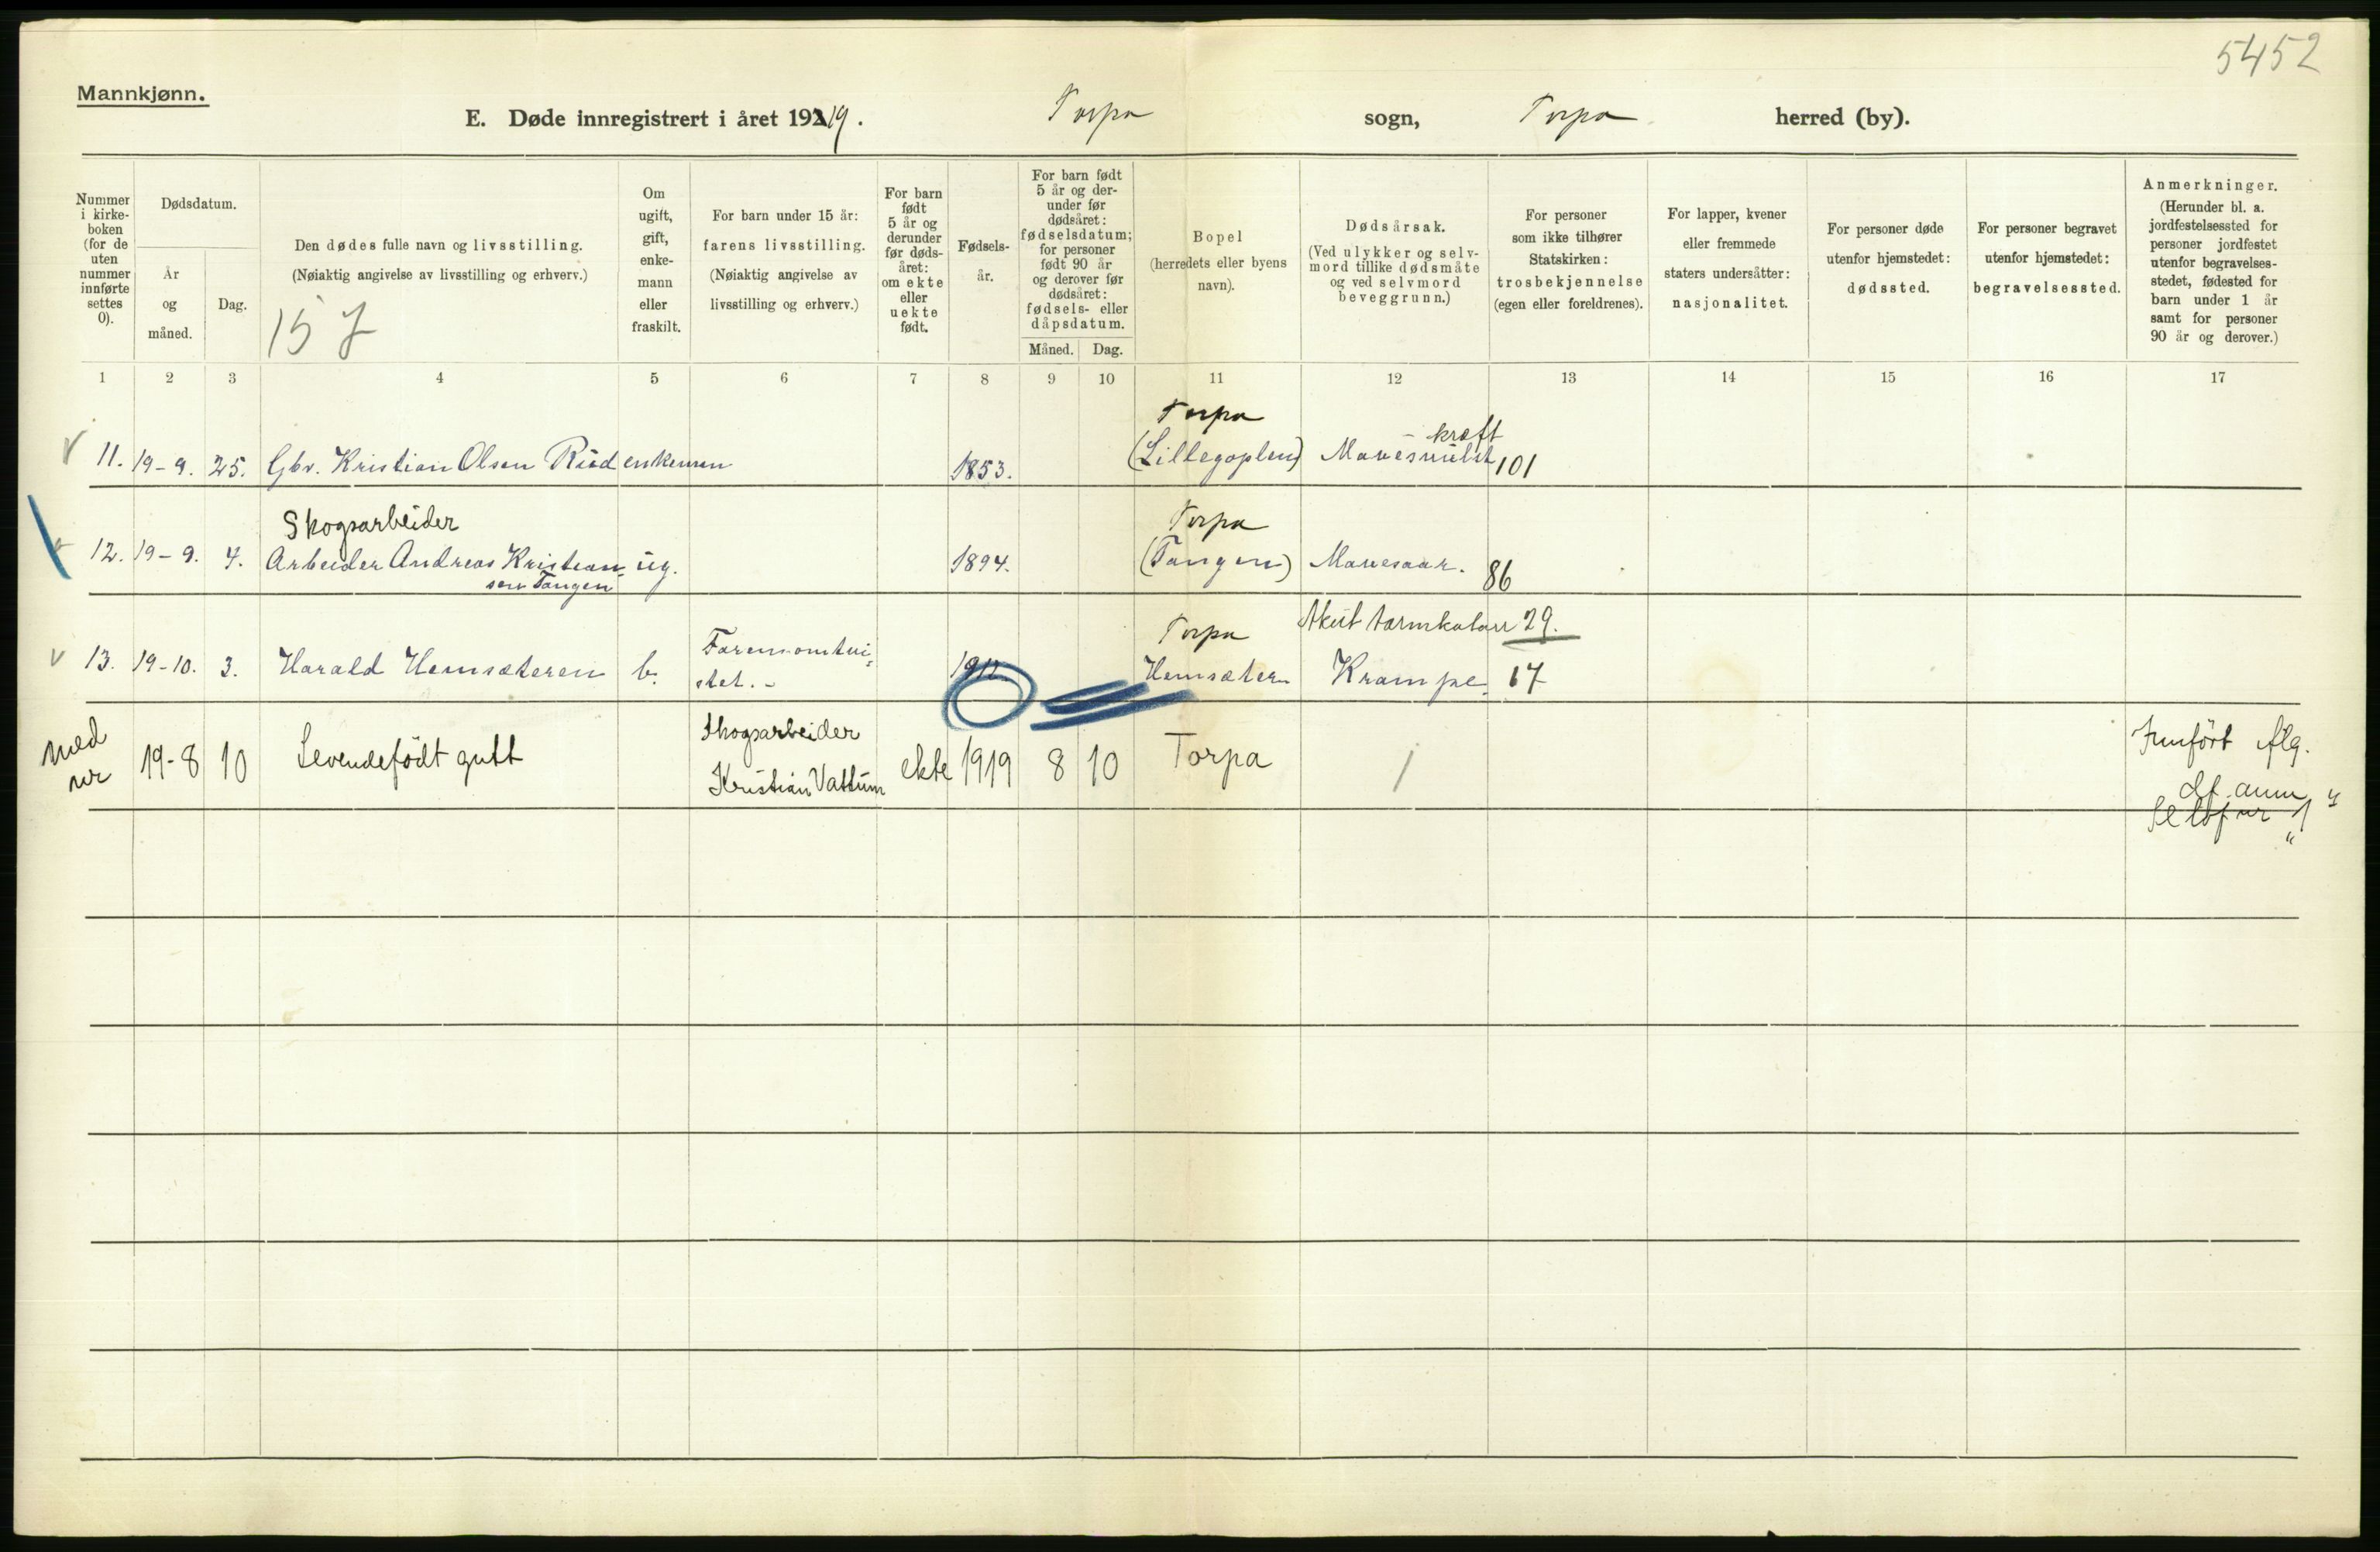 5452
Mannkjønn.
E. Døde innregistrert i året 1919. Torpa sogn, Torpa herred (by).
Nummer i kirke-boken (for de uten nummer innførte settes 0).
Dødsdatum.
År og måned.
Dag.
Den dødes fulle navn og livsstilling.
(Nøiaktig angivelse av livsstilling og erhverv.)
157
Om ugift, gift, enke-mann eller fraskilt.
For barn under 15 år:
farens livsstilling.
(Nøiaktig angivelse av
livsstilling og erhverv.)
For barn født 5 år og derunder før døds-året: om ekte eller uekte født.
Fødsels-år.
For barn født 5 år og der-under før dødsåret: fødselsdatum; for personer født 90 år og derover før dødsåret: fødsels- eller dåpsdatum.
Måned. Dag.
Bopel
(herredets eller byens
navn).
Dødsårsak.
(Ved ulykker og selv-mord tillike dødsmåte og ved selvmord beveggrunn.)
For personer
som ikke tilhører
Statskirken:
trosbekjennelse
(egen eller foreldrenes).
For lapper, kvener
eller fremmede
staters undersåtter:
nasjonalitet.
For personer døde
utenfor hjemstedet:
dødssted.
For personer begravet
utenfor hjemstedet:
begravelsessted.
Anmerkninger.
(Herunder bl. a.
jordfestelsessted for
personer jordfestet
utenfor begravelses-
stedet, fødested for
barn under 1 år
samt for personer
90 år og derover.)
1 2 3 4 5 6 7 8 9 10 11 12 13 14 15 16 17
Torpa
kræft
11. 19-9. 25. Gbr. Kristian Olsen Rud enkemn 1853. (Lillegoplen) Mavesvulst 101
Skogsarbeider Torpa
12. 19-9. 4. Arbeider Andreas Kristian- ug. 1894. (Tangen) Mavesaar. 86
sen Tangen
Torpa Akut tarmkatarr 29.
13. 19-10. 3. Harald Hemsæteren b. 1912 Hemsæter Krampe. 17
Skogsarbeider
19-8 10 Levendefödt gutt Kristian Vattum ekte 1919 8 10 Torpa /